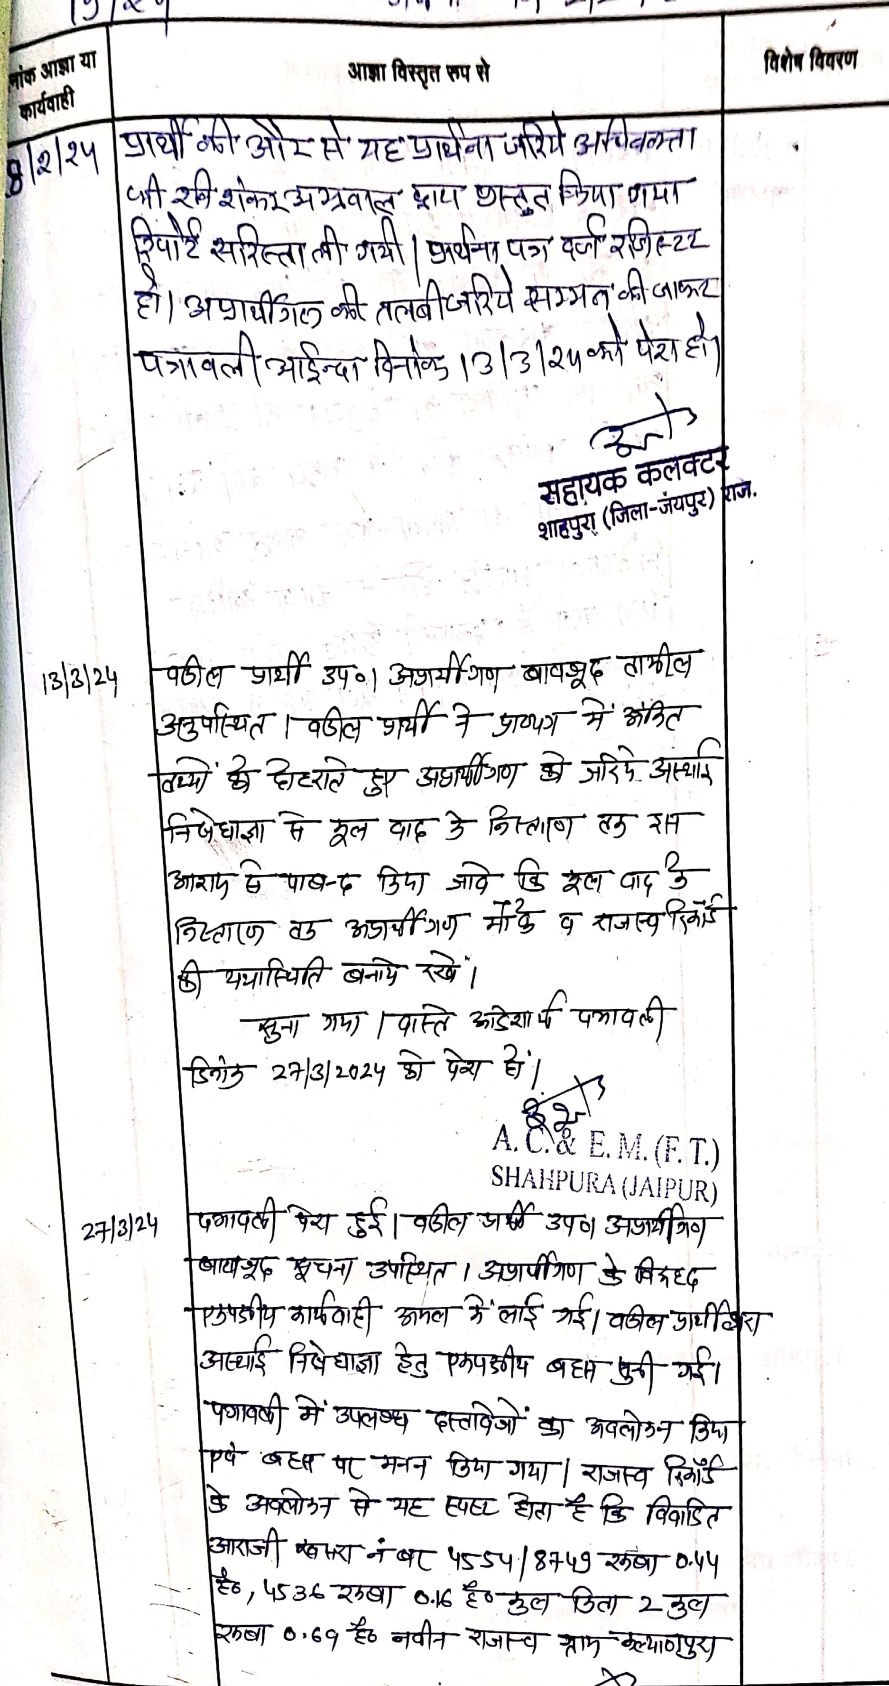 नांक आज्ञा या
कार्यवाही
आज्ञा विस्तृत रूप से
विशेष विवरण
8/2/24
प्रार्थी की और से यह प्रार्थना जरिये अधिवक्ता
श्री रवि शंकर अग्रवाल द्वारा प्रस्तुत किया गया
रिपोर्ट सरिस्ता ली गयी। प्रार्थना पत्र दर्ज रजिस्टर
हो। अप्रार्थीगण की तलबी जरिये सम्मन की जाकर
पत्रावली आईन्दा दिनांक 13/3/24 को पेश हो।
सहायक कलक्टर
शाहपुरा (जिला-जयपुर) राज.
13/3/24
वकील प्रार्थी उप०। अप्रार्थीगण बावजूद तामील
अनुपस्थित। वकील प्रार्थी ने में अंकित
तथ्यों को दोहराते हुए अप्रार्थीगण को जरिये अस्थाई
निषेधाज्ञा से मूल वाद के निस्तारण तक इस
आशय से पाबन्द किया जावे कि मूल वाद के
निस्तारण तक अप्रार्थीगण मौके व राजस्व रिकॉर्ड
की यथास्थिति बनाये रखें।
सुना गया। वास्ते आदेशार्थ पत्रावली
दिनांक 27/3/2024 को पेश हो।
A. C. & E. M. (F. T.)
SHAHPURA (JAIPUR)
27/3/24
पत्रावली पेश हुई। वकील प्रार्थी उप० अप्रार्थीगण
बावजूद सूचना उपस्थित। अप्रार्थीगण के विरूद्द
एकपक्षीय कार्यवाही अमल में लाई गई। वकील प्रार्थी द्वारा
अस्थाई निषेधाज्ञा हेतु एकपक्षीय बहस सुनी गई।
पत्रावली में उपलब्ध दस्तावेजों का अवलोकन किया
एवं बहस पर मनन किया गया। राजस्व रिकॉर्ड
के अवलोकन से यह स्पष्ट होता है कि विवादित
आराजी खसरा नंबर 4554/8749 रकबा 0.44
है०, 4536 रकबा 0.16 है० कुल किता 2 कुल
रकबा 0.69 है० नवीन राजस्व ग्राम कल्याणपुरा